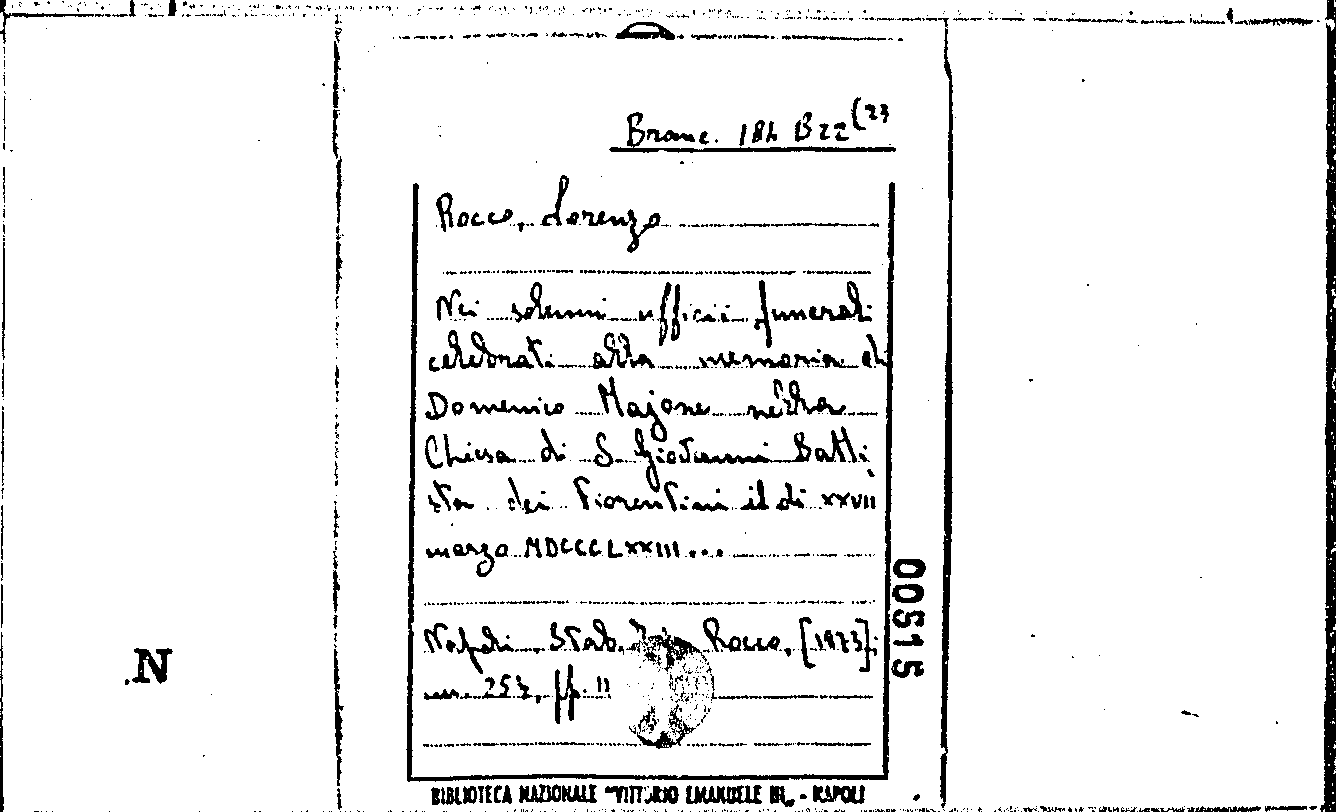 Branc. 18h B22(23
Rocco, Lorenzo
Nei solenni ufficii funerali
celebrati alla memoria di
Domenico Majone nella
Chiesa di S. Giovanni Batti
sta dei Fiorentini il dì XXVII
marzo MDCCCLXXIII...
Napoli, Stab. Rocco, [1873];
253, pp. 11
00515
N.
BIBLIOTECA NAZIONALE "VITTORIO EMANUELE III„ - NAPOLI